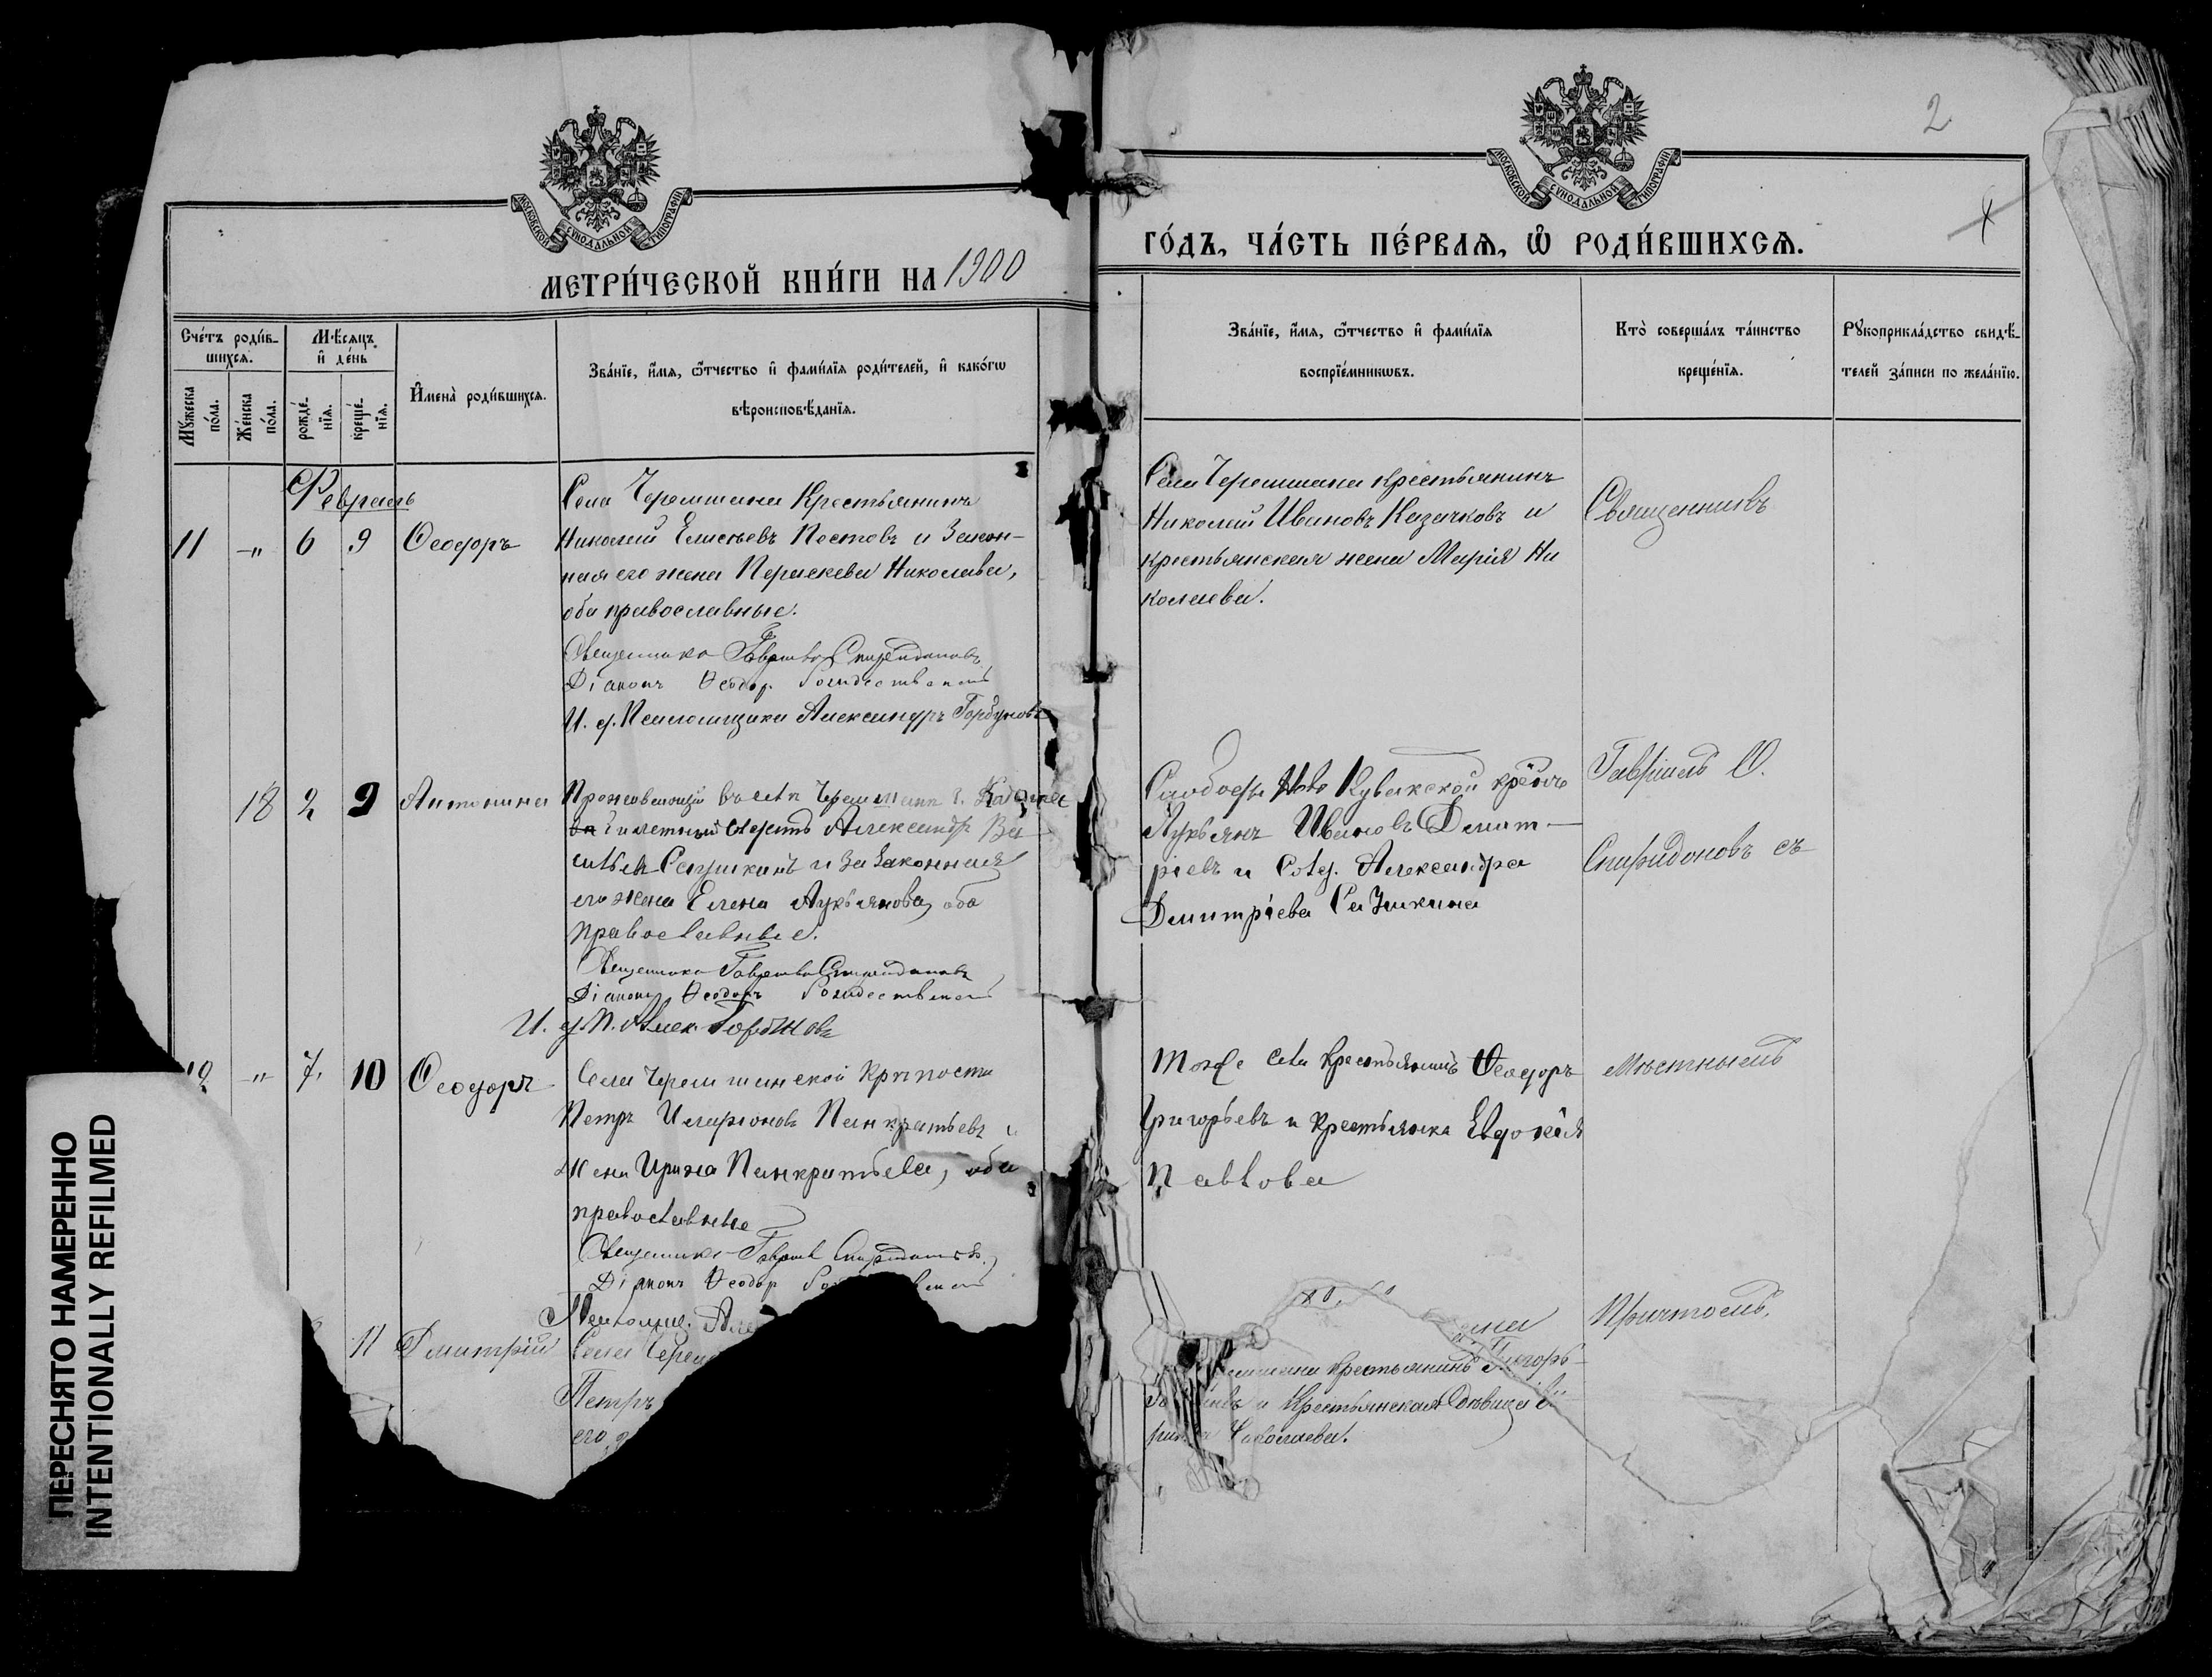 МОСКОВСКОЙ СѴНОДАЛЬНОЙ ТИПОГРАФІИ
МЕТРИ́ЧЕСКОЙ КНИ́ГИ НА 1900
Сче́тъ роди́в-
шихсѧ.
Мѣ́сѧцъ
и҆ де́нь
Мꙋ́жеска
по́ла.
Же́нска
по́ла.
рожде́-
нїѧ.
креще́-
нїѧ.
И҆мена̀ роди́вшихсѧ.
Зва́нїе, и҆́мѧ, ѻ҆́тчество и҆ фами́лїѧ роди́телей, и҆ како́гѡ
вѣроисповѣ́данїѧ.
Февраль
11 -„ 6 9 Ѳеодоръ
Села Черемшана Крестьянинъ
Николай Елисѣевъ Постовъ и Закон-
ная его жена Параскева Николаева,
оба православные.
Священникъ Гавріилъ Спиридоновъ
Діаконъ Ѳеодоръ Рождественскій
И. д. Псаломщика Александръ Горбуновъ
18 2 9 Антонина
Проживающій въ селѣ Черемшанѣ
билетный солдатъ Александръ Ва
сильевъ и законная
его жена Елена Лукьянова, оба
православные.
Священникъ Гавріилъ Спиридоновъ
Діаконъ Ѳеодоръ Рождественскій
И. д. П. Алек. Горбуновъ
„ 7 10 Ѳеодоръ
Села Черемшанской Крѣпости
Петръ Иларіоновъ Панкратьевъ и
жена Ирина Панкратьева, оба
православные
Священникъ Гавріилъ Спиридоновъ
Діаконъ Ѳеодоръ
Псаломщ. Але
11 Дмитрій
Села Черем
Петръ
его
ПЕРЕСНЯТО НАМЕРЕННО
INTENTIONALLY REFILMED
2
МОСКОВСКОЙ СѴНОДАЛЬНОЙ ТИПОГРАФІИ
ГО́ДЪ, ЧА́СТЬ ПЕ́РВАѦ, Ѽ РОДИ́ВШИХСѦ.
Зва́нїе, и҆́мѧ, ѻ҆́тчество и҆ фами́лїѧ
воспрїе́мникѡвъ.
Кто̀ соверша́лъ та́инство
креще́нїѧ.
Рꙋкоприкла́дство свидѣ́-
телей за́писи по жела́нїю.
Села Черемшана крестьянинъ
Николай Ивановъ Казачковъ и
крестьянская жена Марія Ни
колаева.
Священникъ
Слободы Ново Кувакской
Лукьянъ Ивановъ Димит-
ріевъ и Александра
Димитріева
Гавріилъ
Спиридоновъ съ
Тоже села Крестьянинъ Ѳеодоръ
Григорьевъ и крестьянка Евдокія
Павлова
мѣстнымъ
крестьянинъ Григорь-
и Крестьянская вдовица
Николаева.
Причтомъ.